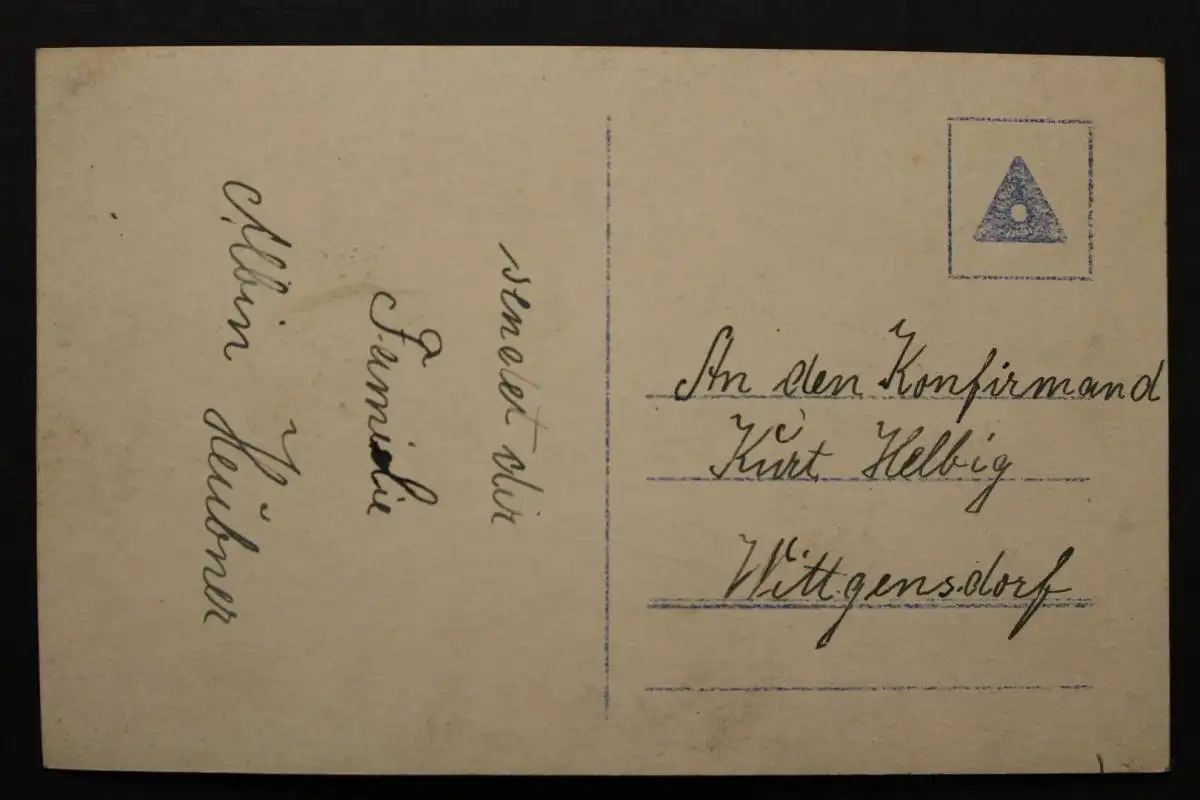 sendet dir
Familie
Albin Heubner
An den Konfirmand
Kurt Helbig
Wittgensdorf